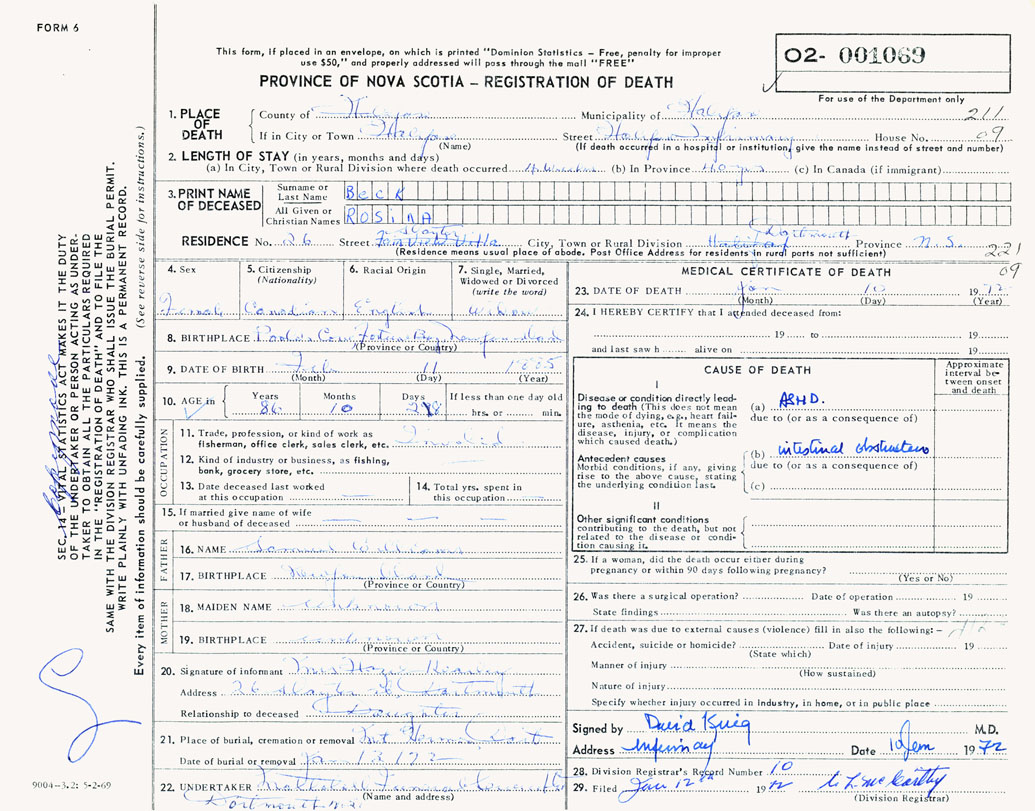 FORM 6
This form, if placed in an envelope, on which is printed "Dominion Statistics – Free, penalty for improper
use $50," and properly addressed will pass through the mail "FREE"
PROVINCE OF NOVA SCOTIA – REGISTRATION OF DEATH
02- 001069
For use of the Department only
1. PLACE OF DEATH
County of Halifax Municipality of Halifax 211
If in City or Town Halifax Street Halifax Infirmary House No. 09
(Name) (If death occurred in a hospital or institution, give the name instead of street and number)
2. LENGTH OF STAY (in years, months and days)
(a) In City, Town or Rural Division where death occurred (b) In Province (c) In Canada (if immigrant)
3. PRINT NAME OF DECEASED
Surname or Last Name BECK
All Given or Christian Names ROSINA
RESIDENCE No. 26 Street Slayter Fairview Villa City, Town or Rural Division Dartmouth Province N.S. 221
(Residence means usual place of abode. Post Office Address for residents in rural parts not sufficient) 09
4. Sex
Female
5. Citizenship (Nationality)
Canadian
6. Racial Origin
English
7. Single, Married, Widowed or Divorced (write the word)
Widow
8. BIRTHPLACE
(Province or Country)
9. DATE OF BIRTH Feb 11 1885
(Month) (Day) (Year)
10. AGE in
Years 86 Months 10 Days If less than one day old
hrs. or min.
OCCUPATION
11. Trade, profession, or kind of work as fisherman, office clerk, sales clerk, etc. Invalid
12. Kind of industry or business, as fishing, bank, grocery store, etc.
13. Date deceased last worked at this occupation
14. Total yrs. spent in this occupation
15. If married give name of wife or husband of deceased
FATHER
16. NAME Samuel Williams
17. BIRTHPLACE Newfoundland
(Province or Country)
MOTHER
18. MAIDEN NAME unknown
19. BIRTHPLACE unknown
(Province or Country)
20. Signature of informant Mrs Hazel
Address 26 Slayter St. Dartmouth
Relationship to deceased Daughter
21. Place of burial, cremation or removal Mt Hermon
Date of burial or removal Jan 13, 1972
22. UNDERTAKER Funeral
(Name and address)
Dartmouth N.S.
MEDICAL CERTIFICATE OF DEATH
23. DATE OF DEATH Jan 10 1972
(Month) (Day) (Year)
24. I HEREBY CERTIFY that I attended deceased from:
19 to 19
and last saw h alive on 19
CAUSE OF DEATH
Approximate interval between onset and death
I
Disease or condition directly leading to death (This does not mean the mode of dying, e.g., heart failure, asthenia, etc. It means the disease, injury, or complication which caused death.)
(a) ASHD.
due to (or as a consequence of)
Antecedent causes
Morbid conditions, if any, giving rise to the above cause, stating the underlying condition last.
(b) intestinal obstruction
due to (or as a consequence of)
(c)
II
Other significant conditions
contributing to the death, but not related to the disease or condition causing it.
25. If a woman, did the death occur either during
pregnancy or within 90 days following pregnancy?
(Yes or No)
26. Was there a surgical operation? Date of operation 19
State findings Was there an autopsy?
27. If death was due to external causes (violence) fill in also the following: –
Accident, suicide or homicide? Date of injury 19
(State which)
Manner of injury
(How sustained)
Nature of injury
Specify whether injury occurred in industry, in home, or in public place
Signed by David M.D.
Address Infirmary Date 10 Jan 1972
28. Division Registrar's Record Number 10
29. Filed Jan 12th 1972 McCarthy
(Division Registrar)
SEC. 14 – VITAL STATISTICS ACT MAKES IT THE DUTY
OF THE UNDERTAKER OR PERSON ACTING AS UNDER-
TAKER TO OBTAIN ALL THE PARTICULARS REQUIRED
IN THE "REGISTRATION OF DEATH" AND TO FILE THE
SAME WITH THE DIVISION REGISTRAR WHO SHALL ISSUE THE BURIAL PERMIT.
WRITE PLAINLY WITH UNFADING INK. THIS IS A PERMANENT RECORD.
Every item of information should be carefully supplied. (See reverse side for instructions.)
9004-3.2: 5-2-69